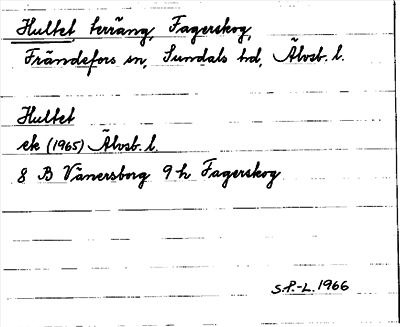 Hultet terräng, Fagerskog,
Frändefors sn, Sundals hd, Älvsb. l.
Hultet
ek (1965) Älvsb. l.
8 B Vänersborg 9 h Fagerskog
S.P.-L. 1966